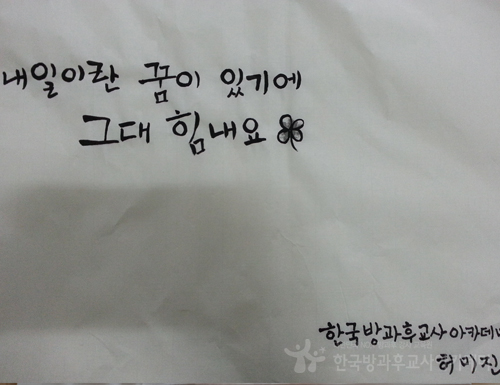 내일이란 꿈이 있기에
그대 힘내요
한국방과후교사아카데미
허미진
한국방과후교사